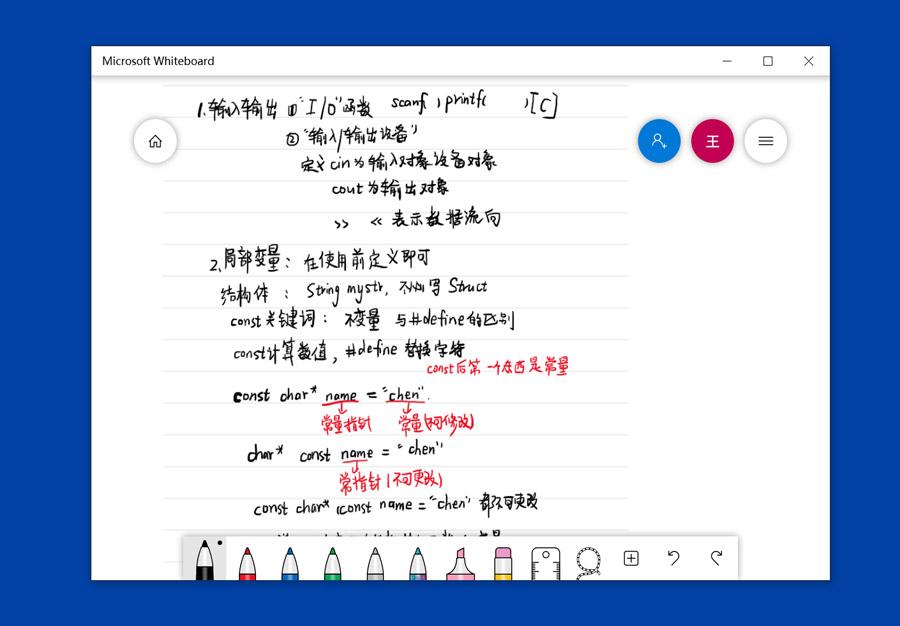 Microsoft Whiteboard
1.输入输出 ①"I/O"函数 scanf, printf( ,[C]
②"输入/输出设备"
王
定义cin为输入对象设备对象
cout为输出对象
>> << 表示数据流向
2.局部变量: 在使用前定义即可
结构体: String mystr, 不必写 Struct
const关键词: 不变量 与#define的区别
const计算数值, #define 替换字符
const后第一个东西是常量
const char* name = "chen".
常量指针 常量(不可修改)
char* const name = "chen"
常指针(不可更改)
const char* (const name = "chen" 都不可更改